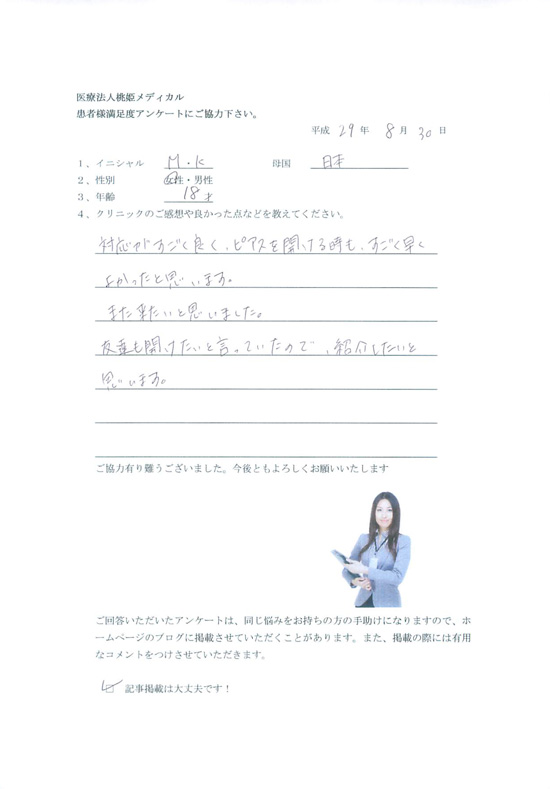 医療法人桃姫メディカル
患者様満足度アンケートにご協力下さい。
平成 29 年 8 月 30 日
1、イニシャル M・K 母国 日本
2、性別 女性・男性
3、年齢 18 才
4、クリニックのご感想や良かった点などを教えてください。
対応がすごく良く、ピアスを開ける時も、すごく早く
よかったと思います。
また来たいと思いました。
友達も開けたいと言っていたので、紹介したいと
思います。
ご協力有り難うございました。今後ともよろしくお願いいたします
ご回答いただいたアンケートは、同じ悩みをお持ちの方の手助けになりますので、ホ
ームページのブログに掲載させていただくことがあります。また、掲載の際には有用
なコメントをつけさせていただきます。
記事掲載は大丈夫です！